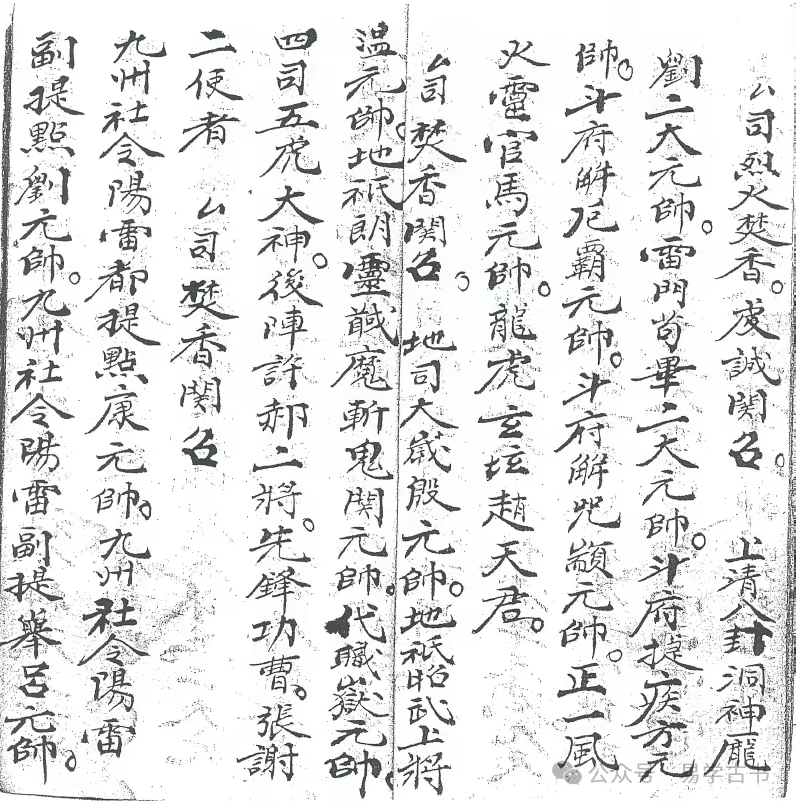 厶司烈火焚香。虔誠関召。　上清八卦洞神龎
劉二大元帥。雷門苟畢二大元帥。斗府捉疾方元
帥。斗府解厄霸元帥。斗府解咒顓元帥。正一風
火靈官馬元帥。龍虎玄坛趙天君。
厶司焚香関召。　地司大歲殷元帥。地祇昭武上將
温元帥。地祇朗靈馘魔斬鬼関元帥。代職嶽元帥。
四司五虎大神。後陣許郝二將。先鋒功曹。張謝
二使者　厶司焚香関召
九州社令陽雷都提點康元帥。九州社令陽雷
副提點劉元帥。九州社令陽雷副提舉呂元帥。
公众号·易学古书